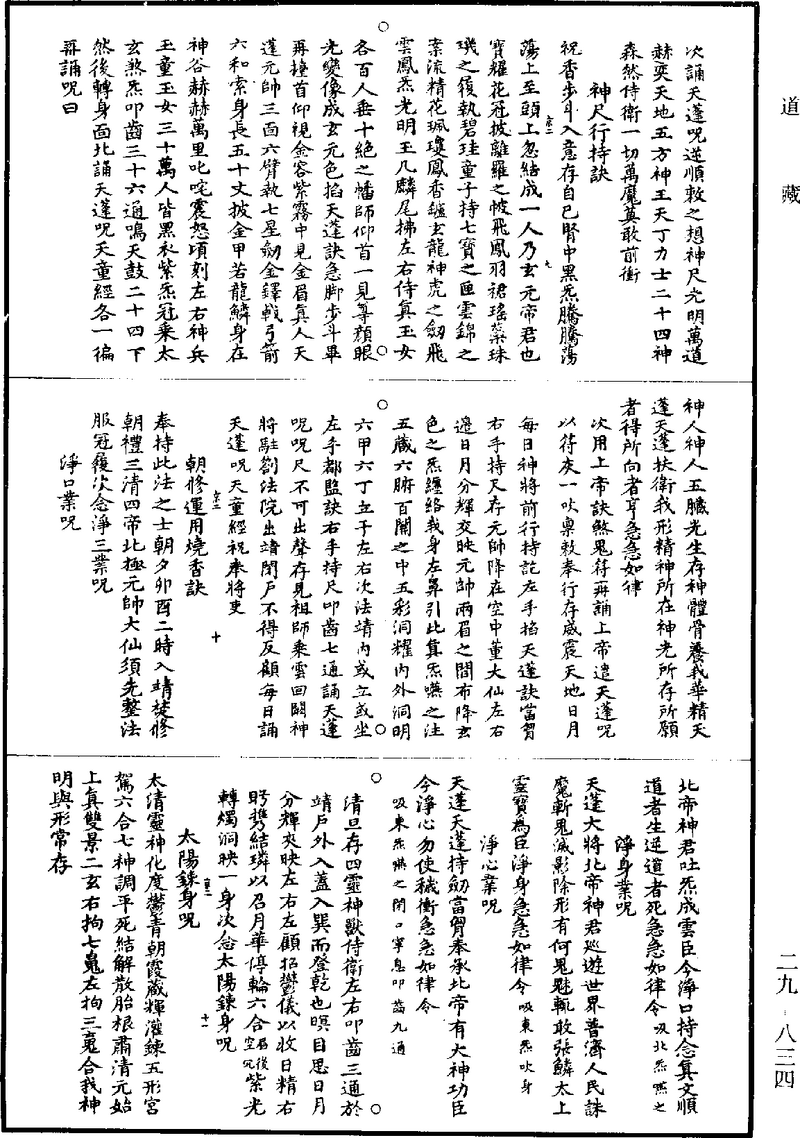 道藏
次誦天蓬呪逆順敕之想神尺光明萬道
赫奕天地五方神王天丁力士二十四神
森然侍衛一切萬魔莫敢前衝
神尺行持訣
祝香步斗入意存自己腎中黑炁騰騰蕩
蕩上至頭上忽結成一人乃玄元帝君也
寶耀花冠披離羅之帔飛鳳羽裙瑤藥珠
璣之履執碧珪童子持七寶之匣雲錦之
案流精花珮瓊鳳香鑪玄龍神虎之劔飛
雲鳳炁光明玉几麟尾拂左右侍真玉女
各百人垂十絕之幡師仰首一見尊顏眼
光變像成玄元色掐天蓬訣急脚步斗畢
再擡首仰視金容紫霧中見金眉真人天
蓬元帥三面六臂執七星劔金鐸戟弓箭
六和索身長五十丈披金甲若龍鱗身在
神谷赫赫萬里叱咤震怒頃刻左右神兵
玉童玉女三十萬人皆黑衣紫炁冠乘太
玄煞炁叩齒三十六通鳴天鼓二十四下
然後轉身面北誦天蓬呪天童經各一徧
再誦呪曰
神人神人五臟光生存神體骨養我華精天
蓬天蓬扶衛我形精神所在神光所存所願
者得所向者亨急急如律
次用上帝訣煞鬼符再誦上帝遣天蓬呪
以符灰一吹稟敕奉行存威震天地日月
每日神將前行持訖左手掐天蓬訣當胷
右手持尺存元帥降在空中董大仙左右
邊日月分輝交映元帥兩眉之間布降玄
色之炁纏絡我身左鼻引此真炁嚥之注
五藏六腑百關之中五彩洞耀內外洞明
六甲六丁立于左右次法靖內或立或坐
左手都監訣右手持尺叩齒七通誦天蓬
呪呪尺不可出聲存見祖師乘雲回闕神
將駐劄法院出靖閉戶不得反顧每日誦
天蓬呪天童經祝奉將吏
朝修運用燒香訣
奉持此法之士朝夕卯酉二時入靖焚修
朝禮三清四帝北極元帥大仙須先整法
服冠履次念淨三業呪
淨口業呪
北帝神君吐炁成雲臣今淨口持念真文順
道者生逆道者死急急如律令吸北炁嚥之
淨身業呪
天蓬大將北帝神君巡遊世界普濟人民誅
魔斬鬼滅影除形有何鬼魅輒敢張鱗太上
靈寶為臣淨身急急如律令吸東炁吹身
淨心業呪
天蓬天蓬持劔當胷奉承北帝有大神功臣
今淨心勿使穢衝急急如律令
吸東炁嚥之閉口寧息叩齒九通
清旦存四靈神獸侍衛左右叩齒三通於
靖戶外入蓋入巽而登乾也瞑目思日月
分輝夾映左右左顧招鬱儀以收日精右
盻攜結璘以召月華停輪六合眉後空冗紫光
轉燭洞映一身次念太陽鍊身呪
太陽鍊身呪
太清靈神化度鬱青朝霞藏輝灌鍊五形宮
駕六合七神調平死結解散胎根肅清元始
上真雙景二玄右拘七鬼左拘三冤合我神
明與形常存
二九-八三四